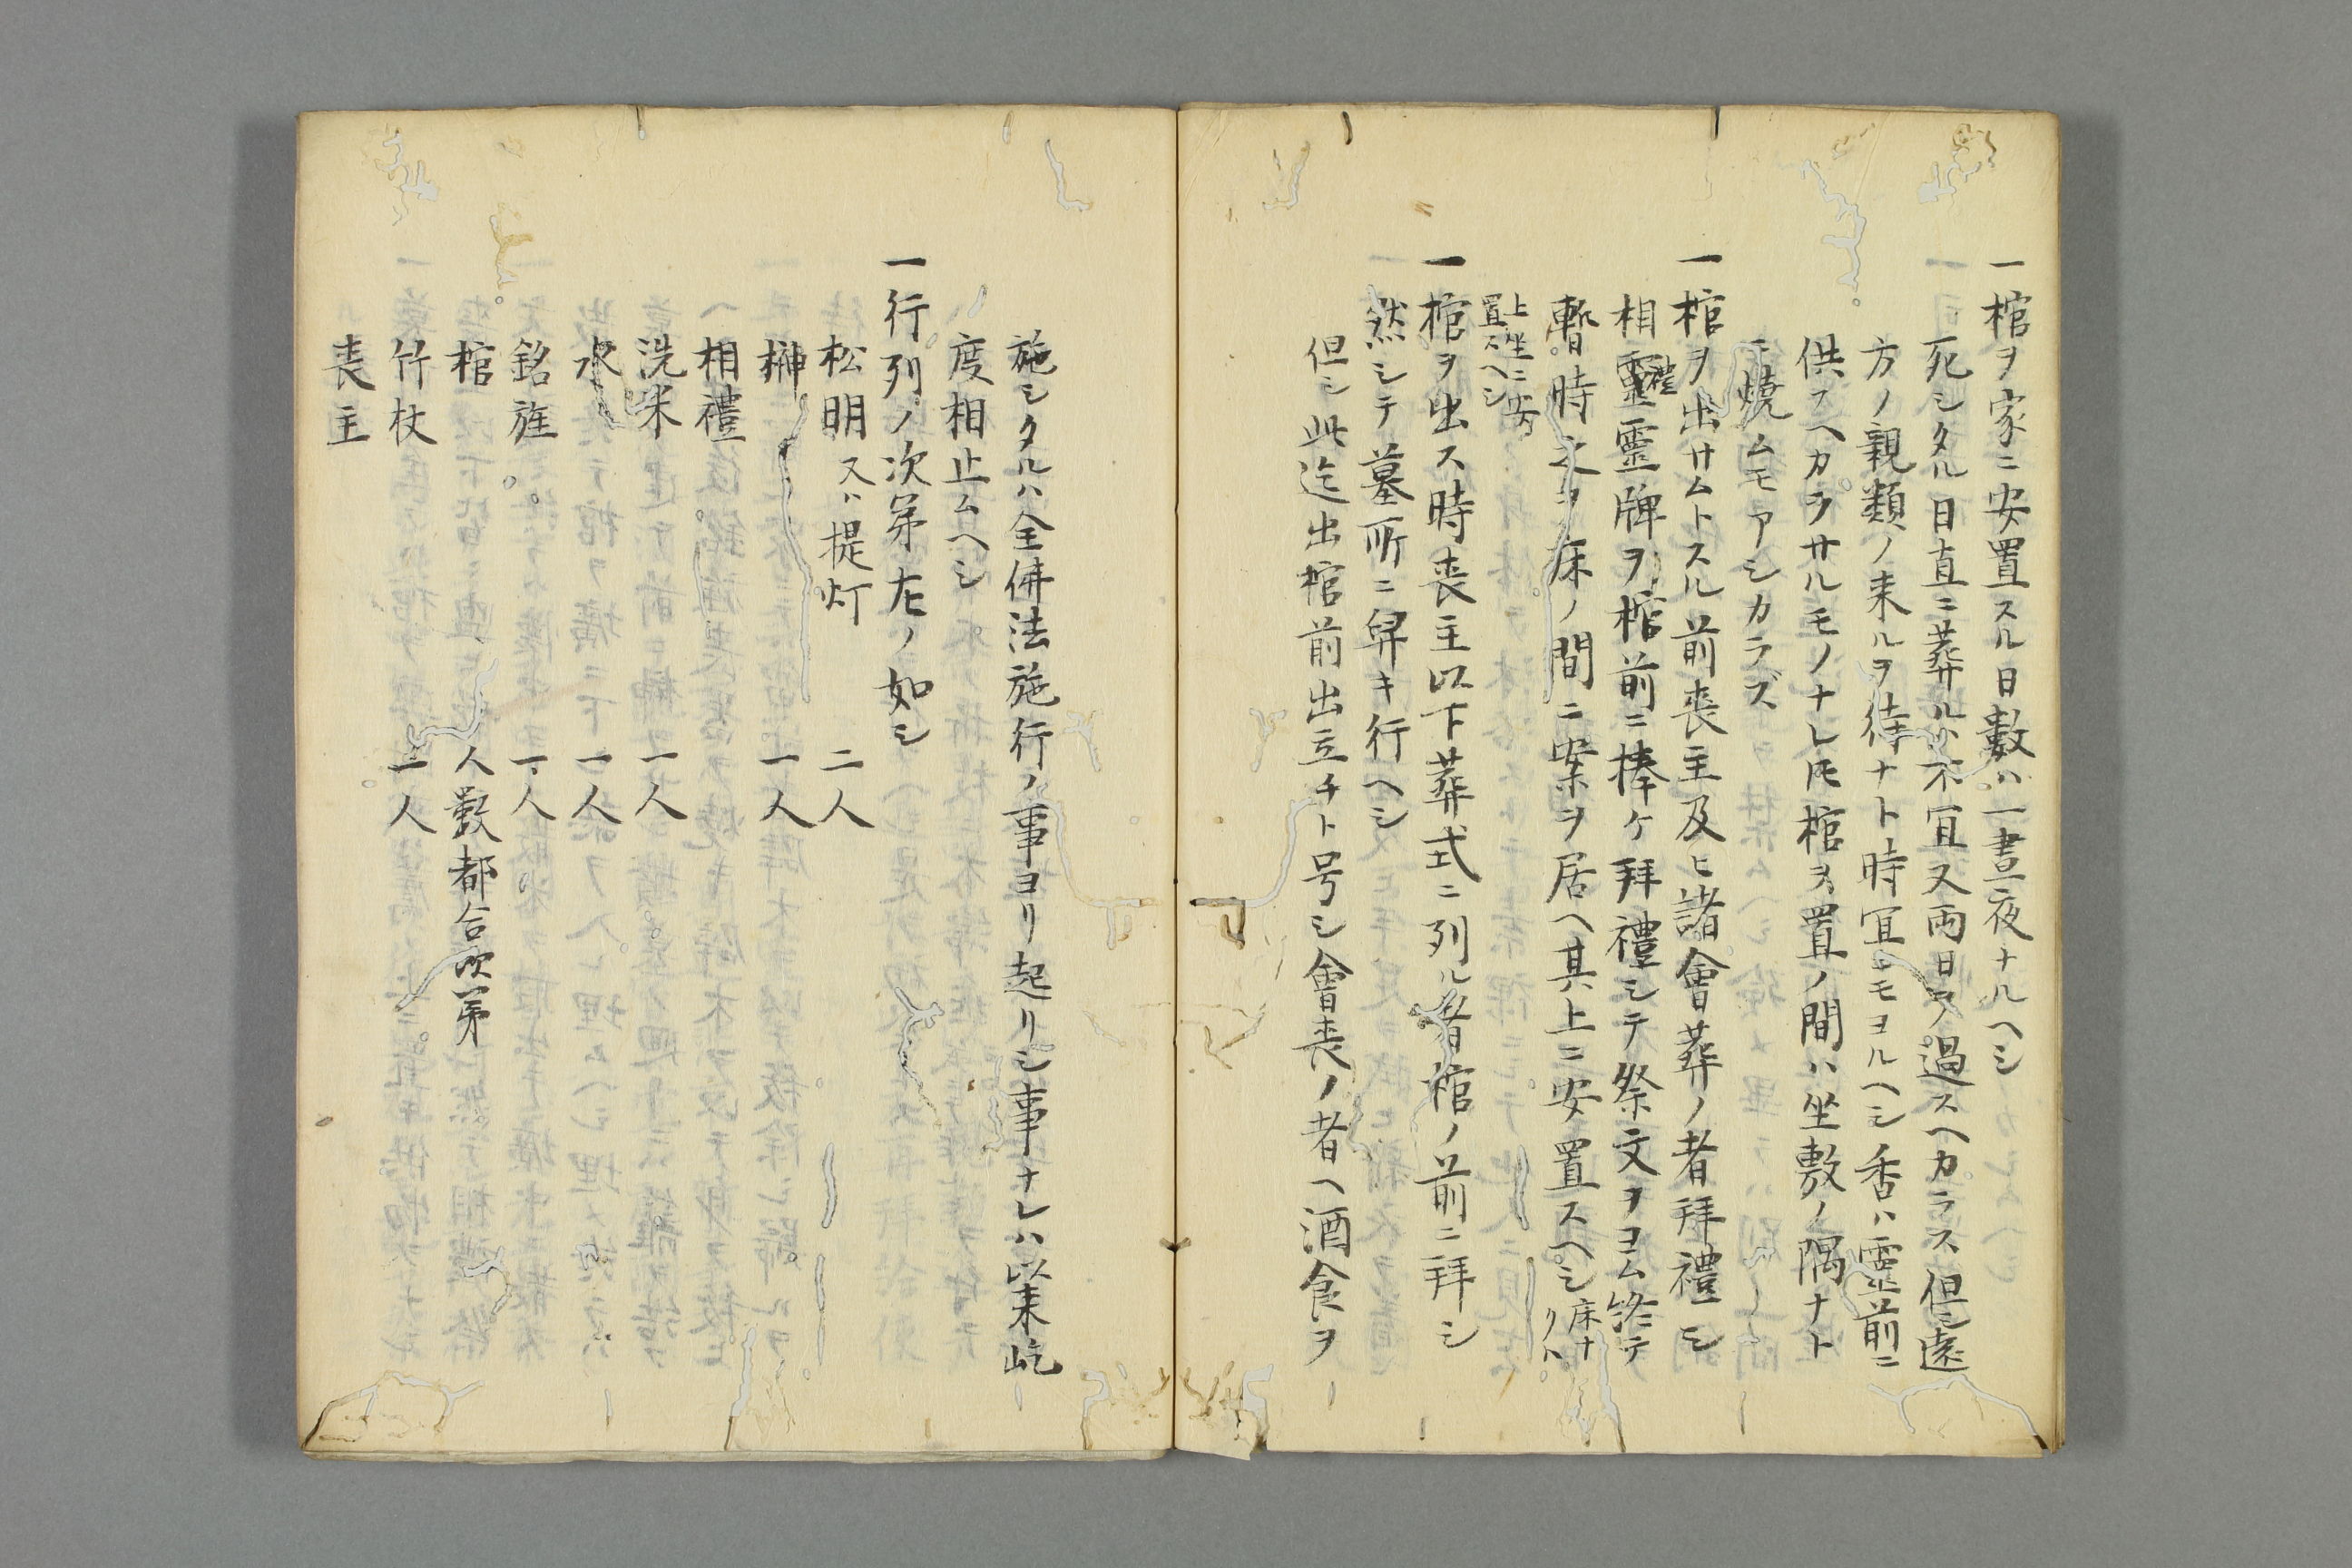 一棺ヲ家ニ安置スル日數ハ一晝夜ナルヘシ
死シタル日直ニ葬ルハ不宜又両日ヲ過スヘカラス但シ遠
方ノ親類ノ来ルヲ待ナト時宜ニモヨルヘシ香ハ靈前ニ
供スヘカラサルモノナレ𪜈棺ヲ置ノ間ハ坐敷ノ隅ナト
ニ焼ムモアシカラズ
一棺ヲ出サムトスル前喪主及ヒ諸會葬ノ者拜禮シ
相靈靈牌ヲ棺前ニ捧ケ拜禮シテ祭文ヲヨム終テ
禮
暫時之ヲ床ノ間ニ案ヲ居ヘ其上ニ安置スヘシ床ナ
クハ
上坐ニ安
置スヘシ
一棺ヲ出ス時喪主以下葬式ニ列ル者棺ノ前ニ拜シ
然シテ墓所ニ舁キ行ヘシ
但シ此迄出棺前出立チト号シ會喪ノ者ヘ酒食ヲ
施シタルハ全佛法施行ノ事ヨリ起リシ事ナレハ以来屹
度相止ムヘシ
一行列ノ次第左ノ如シ
松明又ハ提灯 二人
榊 一人
相禮
洗米 一人
水 一人
銘旌 一人
棺 人數都合次第
竹杖 一人
喪主